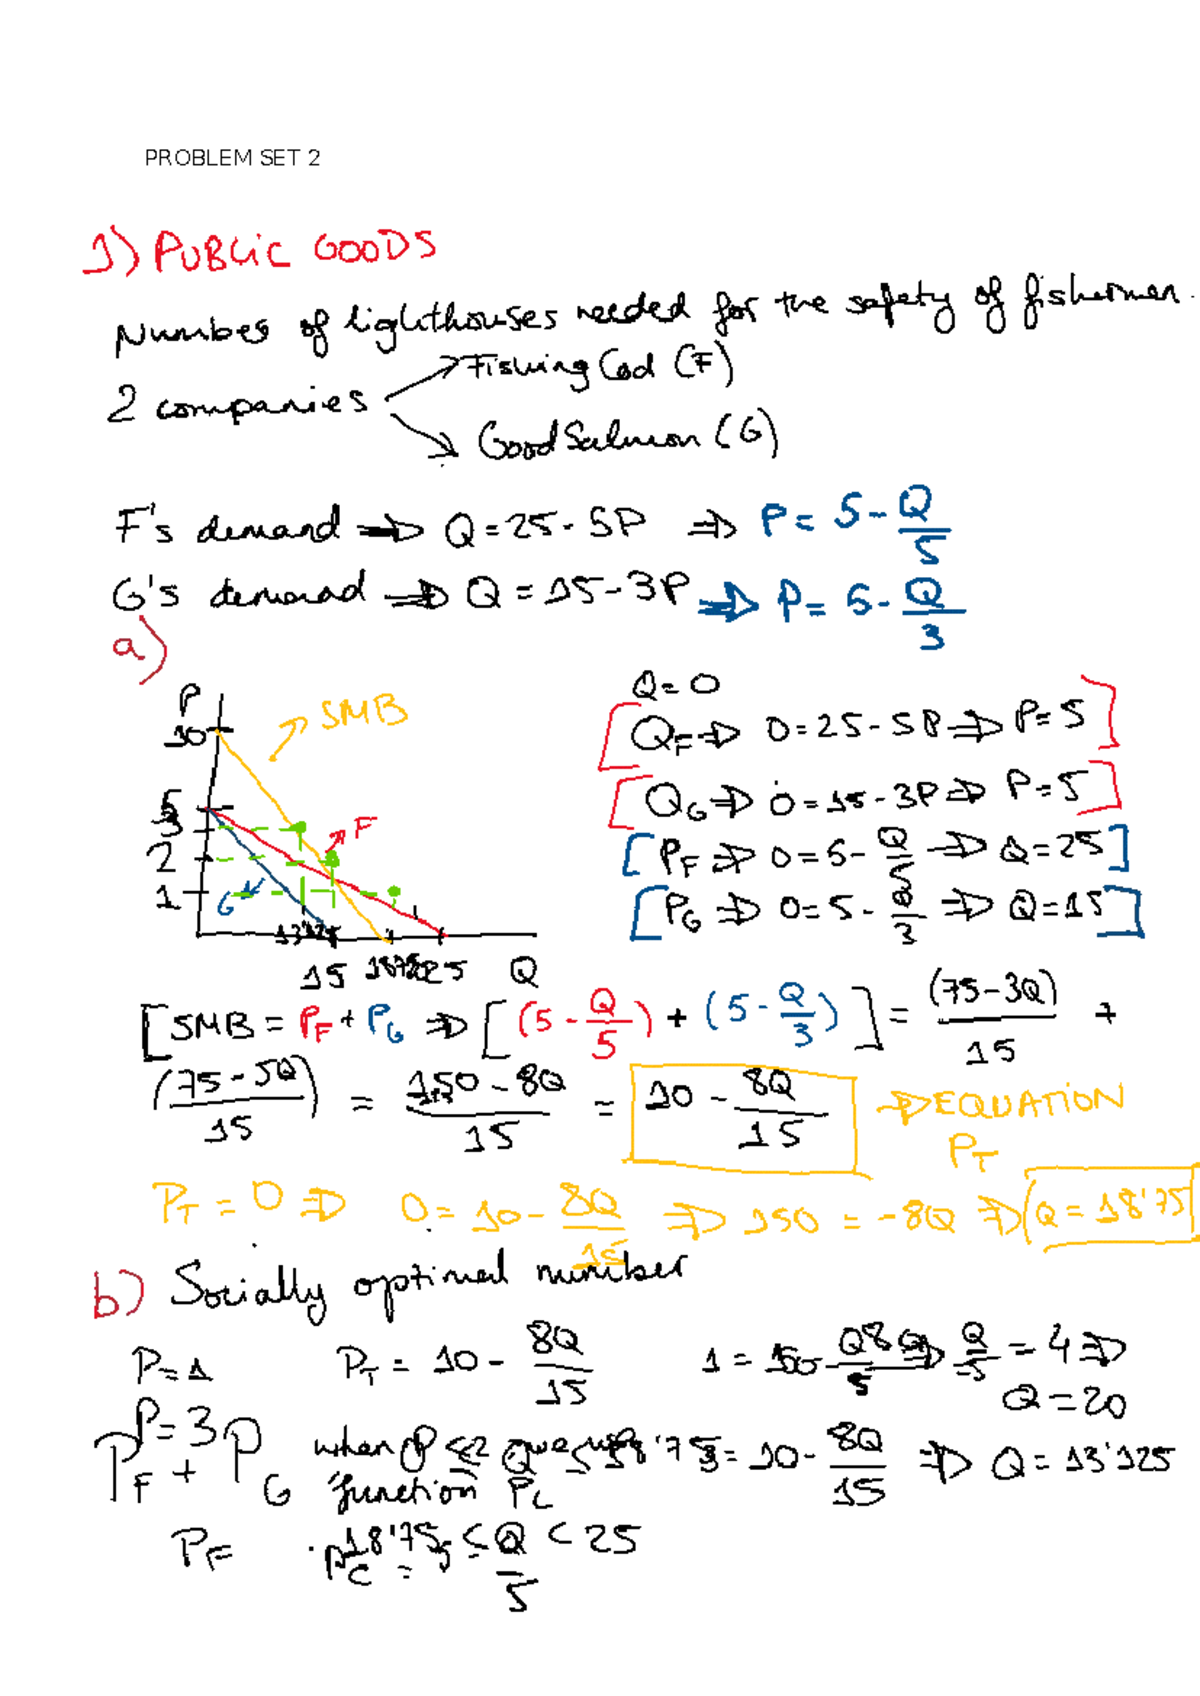 PROBLEM SET 2
1) PUBLIC GOODS
Number of lighthouses needed for the safety of fishermen.
2 companies
Fishing Cod (F)
Good Salmon (G)
F's demand ⇒ Q = 25 - 5P ⇒ P = 5 - Q/5
G's demand ⇒ Q = 15 - 3P ⇒ P = 5 - Q/3
a)
P
SMB
10
5
3
2
1
F
G
13'125
15 18'75 25 Q
Q = 0
[Q_F ⇒ 0 = 25 - 5P ⇒ P = 5]
[Q_G ⇒ 0 = 15 - 3P ⇒ P = 5]
[P_F ⇒ 0 = 5 - Q/5 ⇒ Q = 25]
[P_G ⇒ 0 = 5 - Q/3 ⇒ Q = 15]
[SMB = P_F + P_G ⇒ [(5 - Q/5) + (5 - Q/3)] = (75 - 3Q)/15 +
(75 - 5Q)/15 = 150 - 8Q/15 = 10 - 8Q/15 ⇒ EQUATION P_T
P_T = 0 ⇒ 0 = 10 - 8Q/15 ⇒ 150 = -8Q ⇒ Q = 18'75
b) Socially optimal number
P = 1 P_T = 10 - 8Q/15 1 = Q/5 = 4 ⇒
Q = 20
P = 3
P_F + P_G when P ≤ 2 = 10 - 8Q/15 ⇒ Q = 13'125
function P_C
P_F 18'75 ≤ Q < 25
P_C = 5